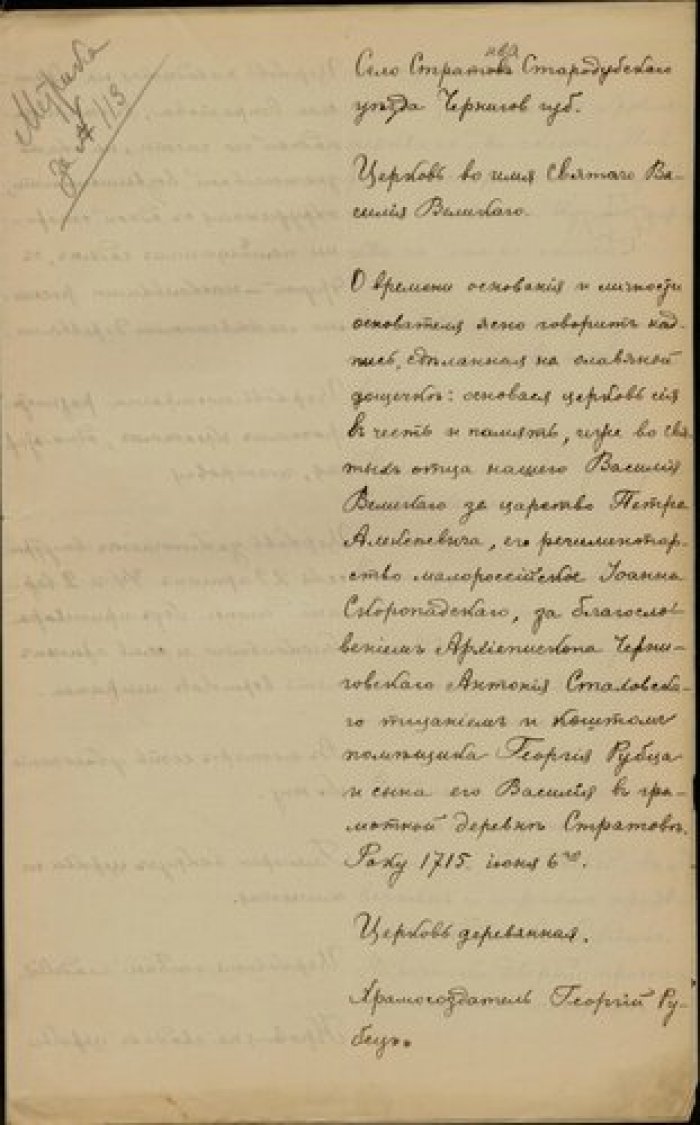 Метрика
за № 113
Село Стратова Стародубскаго
уѣзда Чернигов губ.
Церковь во имя Святаго Ва-
силія Великаго.
О времени основанія и личности
основателя ясно говоритъ над-
пись, сдѣланная на
дощечкѣ: основася церковь сія
въ честь и память, иже во свя-
тыхъ отца нашего Василія
Великаго за царство Петра
Алексѣевича, его рейментар-
ство малороссійское Іоанна
Скоропадскаго, за благосло-
веніемъ Архіепископа Черни-
говскаго Антонія Стаховска-
го тщаніемъ и коштомъ
помѣщика Георгія Рубца
и сына его Василія въ
деревнѣ Стратовѣ.
Року 1715. іюня 6го.
Церковь деревянная.
Храмосоздатель Георгій Ру-
бецъ.